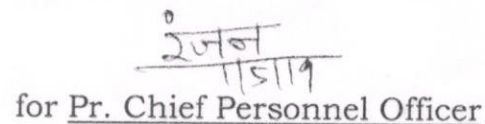 रंजन
1/5/19
for Pr. Chief Personnel Officer